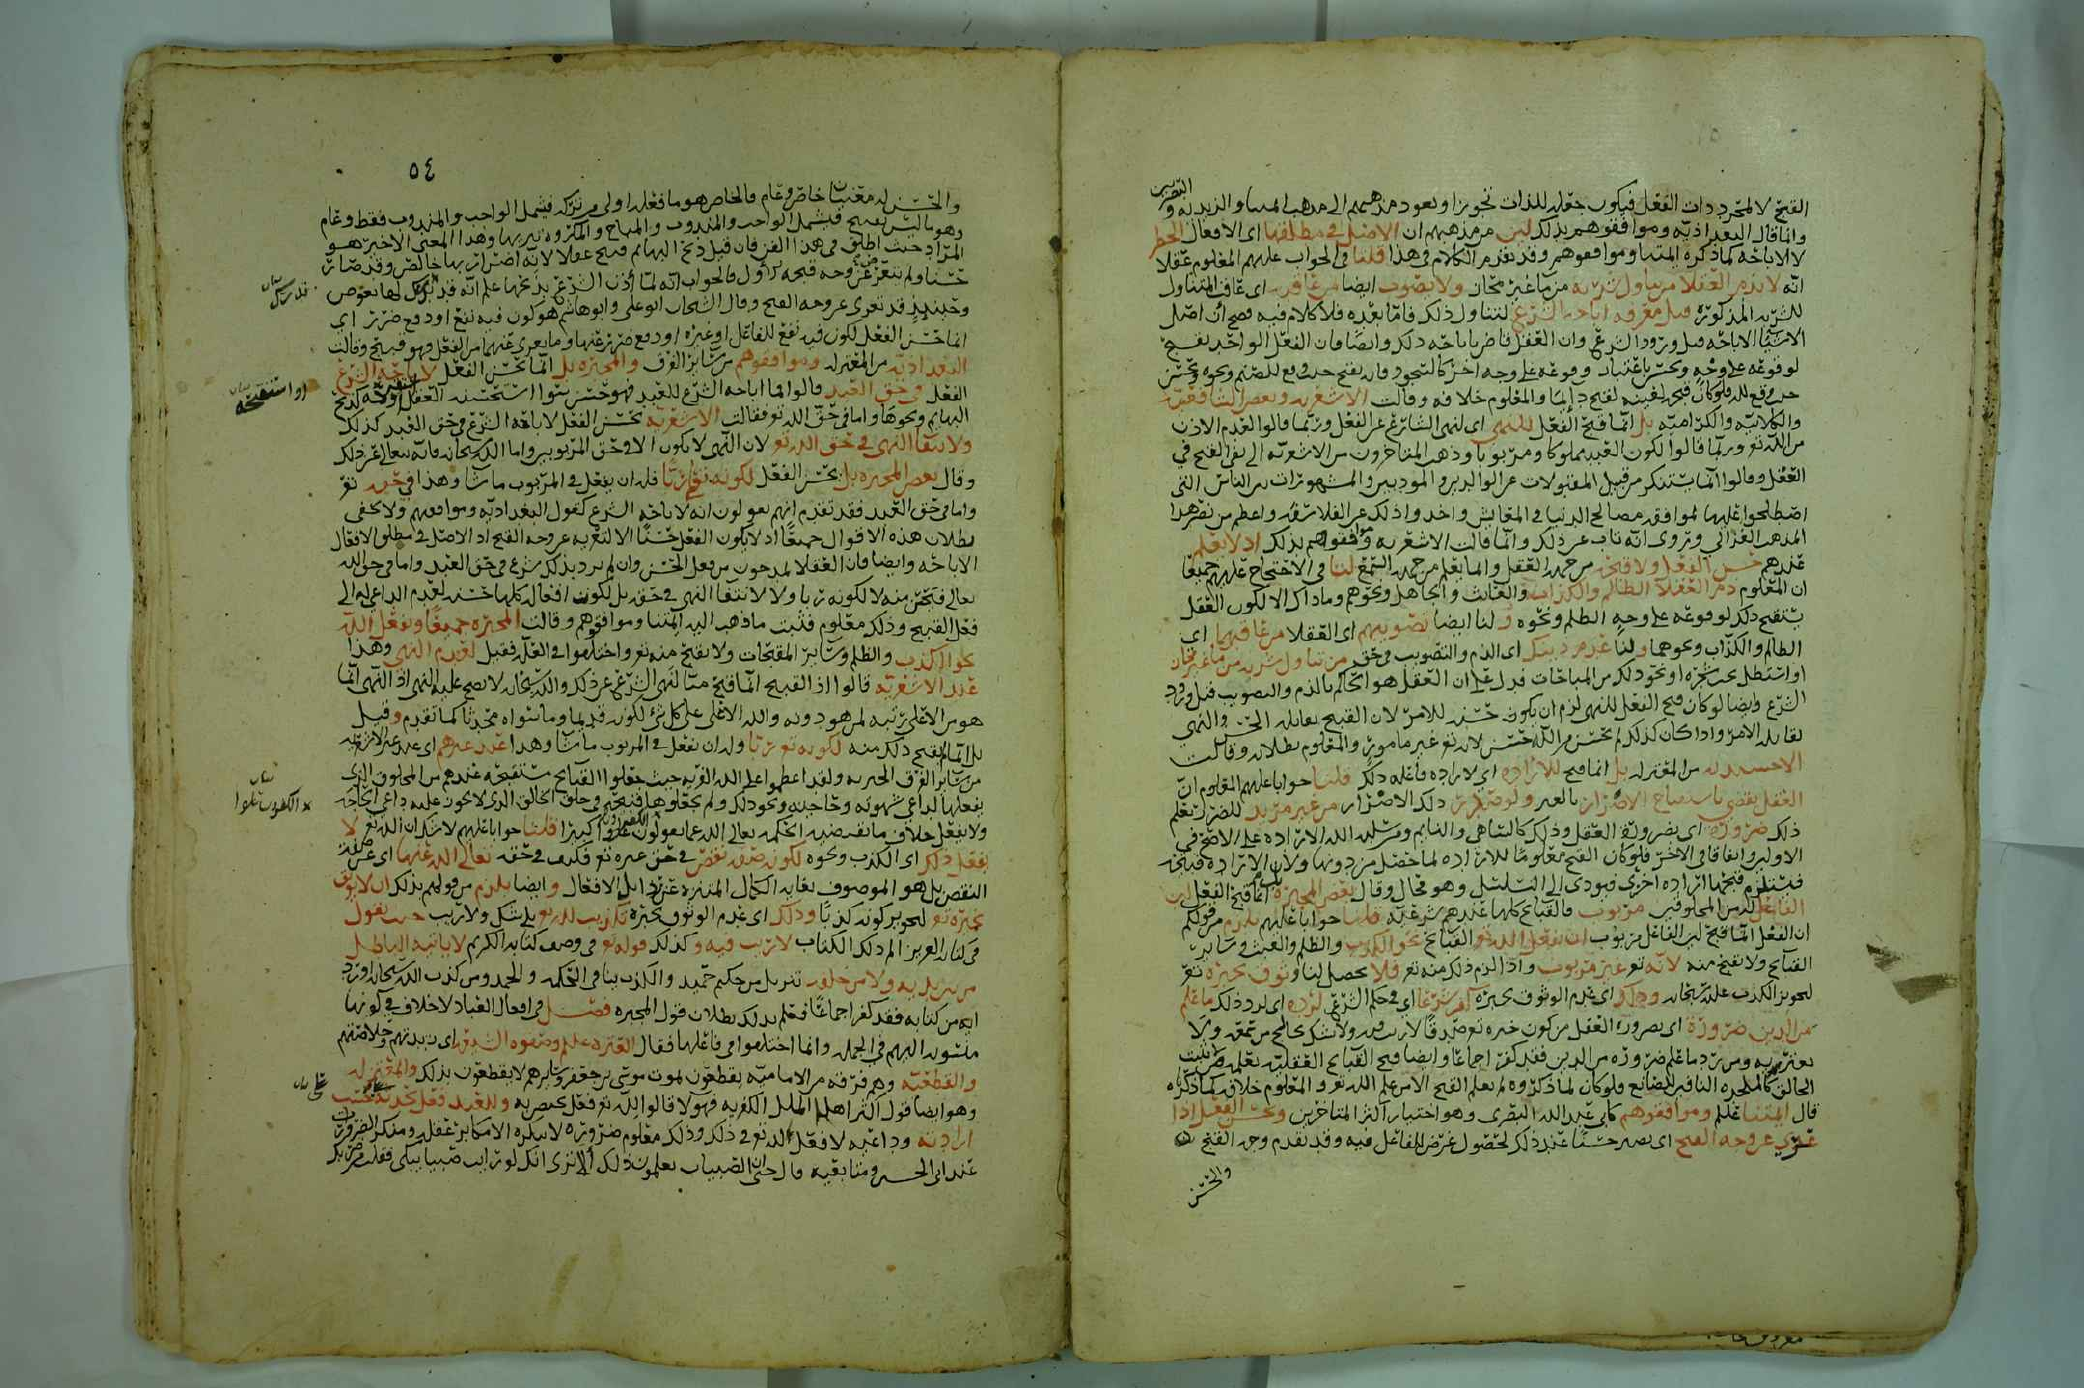 القبح لا لمجرد ذات الفعل فيكون جعله للذات تجوزا ويعود مذهبهم الى مذهب
وانما قال البغداذيه وموافقوهم بذلك لبن من مذهبهم ان الاصل في مطلقها اي الافعال الحظر
لا الاباحه كما ذكره ائمتنا وموافقوهم وقد تقدم الكلام في هذا قلنا في الجواب عليهم المعلوم عقلا
انه لا يذم العقلا من تناول شربه من ماء غير محاز ولا يصوب ايضا من عاقبه اي عاقب المتناول
للشربه المذكوره قبل معرفه اباحه الشرع لتناول ذلك فاما بعده فلا كلام فيه فصح ان اصل
الاشيا الاباحه قبل ورود الشرع وان العقل قاض باباحه ذلك وايضا فان الفعل الواحد يقبح
لوقوعه على وجه ويحسن باعتبار وقوعه على وجه اخر كالسجود فانه يقبح حيث وقع للصنم ونحوه ويحسن
حيث وقع لله فلو كان قبحه لعينه لقبح دايما والمعلوم خلافه وقالت الاشعريه وبعض الشافعيه
والكلابيه والكراميه بل انما قبح الفعل للنهي اي لنهي الشارع عن الفعل وربما قالوا لعدم الاذن
من الله تع وربما قالوا لكون العبد مملوكا ومربوبا وذهب المتاخرون من الاشعريه الى نفي القبح في
العقل وقالوا انما يستنكر من قبيل المقبولات عن الوالدين والمودبين والمشهورات بين الناس التي
اصطلحوا عليها لموافقه مصالح الدنيا في المعايش واخذوا ذلك عن الفلاسفه واعظم من نصر هذا
المذهب الغزالي ويروى انه تاب عن ذلك وانما قالت الاشعريه وموافقوهم بذلك اذ لا يعلم
عندهم حسن الفعل ولا قبحه من جهه العقل وانما يعلم من جهه السمع لنا في الاحتجاج عليهم جميعا
ان المعلوم ذم العقلا الظالم والكذاب والعابث والجاهل ونحوهم وما ذاك الا لكون العقل
يستقبح ذلك لوقوعه على وجه الظلم ونحوه ولنا ايضا تصويبهم اي العقلا من عاقبهما اي
الظالم والكذاب ونحوهما ولنا عدم ذينك اي الذم والتصويب في حق من تناول شربه من ماء غير محاز
او استظل تحت شجره او نحو ذلك من المباحات فدل على ان العقل هو الحاكم بالذم والتصويب قبل ورود
الشرع وايضا لو كان قبح الفعل للنهي لزم ان يكون حسنه للامر لان القبيح يقابله الحسن والنهي
يقابله الامر واذا كان كذلك لم يحسن من الله حسن لانه تع غير مامور والمعلوم بطلانه وقالت
من المعتزله بل انما قبح للاراده اي لاراده فاعله ذلك قلنا جوابا عليهم المعلوم ان
العقل يقضي الاضرار بالغير ولو صدر ذلك الاضرار من غير مريد للضرر يعلم
ذلك ضروره اي بضروره العقل وذلك كالساهي والنايم ومن سلبه الله الاراده على الاصح في
الاولين واتفاقا في الاخر فلو كان القبح معلوما للاراده لما حصل من دونها ولان الاراده قبيحه
فيستلزم قبحها اراده اخرى فيودي الى التسلسل وهو محال وقال بعض المجبره بل انما قبح الفعل لان
الفاعل له من المخلوقين مربوب فالقبائح كلها عندهم شرعيه قلنا جوابا عليهم يلزم من قولكم
ان الفعل انما قبح لان الفاعل مربوب ان يفعل الله تع القبائح نحو الكذب والظلم والعبث وساير
القبائح ولا تقبح منه لانه تع غير مربوب واذا لزم ذلك منه تع فلا يحصل لنا وثوق بخبره تع
لتجويز الكذب عليه سبحانه وذلك اي عدم الوثوق بخبره كفر شرعا اي في حكم الشرع لرده اي لرد ذلك ما علم
من الدين ضروره اي بضروره العقل من كون خبره تع صدقا لا ريب فيه ولا شك يخالج من سمعه ولا
يعتريه ومن رد ما علم ضروره من الدين فقد كفر اجماعا وايضا قبح القبائح العقليه نعلمه من لا يثبت
الخالق كالملحده النافين للصانع فلو كان لما ذكروه لم يعلم القبح الا من علم الله تع والمعلوم خلافه كما ذكرناه
قال ائمتنا عليلم وموافقوهم كابي عبد الله البصرى وهو اختيار اكثر المتاخرين ويحسن الفعل اذا
عري عن وجه القبح اي يصير حسنا عند ذلك لحصول غرض الفاعل فيه وقد تقدم وجه القبح
والحسن
٥٤
والحسن له معنيان خاص وعام فالخاص هو ما فعله اولى من تركه فيشمل الواجب والمندوب فقط وعام
وهو ما ليس بقبيح فيشمل الواجب والمندوب والمباح والمكروه تنزيها وهذا المعنى الاخير هو
المراد حيث اطلق في هذا الفن فان قيل ذبح البهايم قبيح عقلا لانه اضرار بها خالص وقد صار
حسنا ولم يتعر عن وجه قبحه الاول فالجواب انه لما اذن الشرع بذبحها علم انه قد لها بعوض
وحينئذ قد تعرى عن وجه القبح وقال الشيخان ابو علي وابو هاشم هو كون فيه نفع او دفع ضرر اي
انما حسن الفعل لكون فيه نفع للفاعل او غيره او دفع ضرر عنهما وما يعرى عنهما من الفعل فهو قبيح وقالت
البغداذيه من المعتزله وموافقوهم من ساير الفرق والمجبره بل انما يحسن الفعل لاباحه الشرع
الفعل في حق العبد قالوا فما اباحه الشرع للعبد فهو حسن سوا استحسنه العقل او لا كذبح
البهايم ونحوها واما في حق الله تع فقالت الاشعريه يحسن الفعل لاباحه الشرع في حق العبد كذلك
ولانتفا النهي في حق الله تع لان النهي لا يكون الا في حق المربوبين واما الله سبحانه فانه يتعالى عن ذلك
وقال بعض المجبره بل يحسن الفعل لكونه تع ربا فله ان يفعل في المربوب ما شا وهذا في حقه تع
واما في حق العبد فقد تقدم انهم يقولون انه لاباحه الشرع كقول البغداديه وموافقيهم ولا يخفى
بطلان هذه الاقوال جميعا اذ لا يكون الفعل حسنا الا لتعريه عن وجه القبح اذ الاصل في مطلق الافعال
الاباحه وايضا فان العقلا يمدحون من فعل الحسن وان لم يرد بذلك شرع في حق العبد واما في حق الله
تعالى فيحسن منه لا لكونه ربا ولا لانتفا النهي في حقه بل لكون افعاله كلها حسنه لعدم الداعي له الى
فعل القبيح وذلك معلوم فثبت ما ذهب اليه ائمتنا وموافقوهم وقالت المجبره جميعا ويفعل الله
نحو الكذب والظلم وساير المقبحات ولا يقبح منه تع واختلفوا في العله فقيل لعدم النهي وهذا
عند الاشعريه قالوا اذ القبيح انما قبح منا لنهي الشرع عن ذلك والله سبحانه لا يصح عليه النهي اذ النهي انما
هو من الاعلى رتبه لمن هو دونه والله الاعلى على كل شي لكونه قديما وما سواه محدثا كما تقدم وقيل
بل انما لم يقبح ذلك منه لكونه تع ربا وله ان يفعل في المربوب ما شا وهذا عند غيرهم اي عند غير الاشعريه
من ساير الفرق الجبريه ولقد اعظموا على الله الفريه حيث جعلوا القبائح مستقبحه عندهم من المخلوق الذي
يفعلها لداعي شهوته وحاجته ونحو ذلك ولم يجعلوها قبيحه في حق الخالق الذي لا يكون عليه داعي الحاجه
ولا يفعل خلاف ما تقتضيه الحكمه تعالى الله عما يقولون علوا كبيرا قلنا جوابا عليهم لا شك ان الله تع لا
يفعل ذلك اي الكذب ونحوه لكونه صفه نقص في حق غيره تع فكيف في حقه تعالى الله عنها اي عن صفه
النقص بل هو الموصوف بغايه الكمال المنزه عن رذايل الافعال وايضا يلزم من قولهم بذلك ان لا يوثق
بخبره تع لتجويز كونه كذبا وذلك اي عدم الوثوق بخبره تكذيب لله تع بلا شك ولا ريب حيث يقول
في كتابه العزيز الم ذلك الكتاب لا ريب فيه وكذلك قوله تع في وصف كتابه الكريم لا ياتيه الباطل
من بين يديه ولا من خلفه تنزيل من حكيم حميد والكذب ينافي الحكمه والحمد ومن كذب الله سبحانه او رد
ايه من كتابه فقد كفر اجماعا فعلم بذلك بطلان قول المجبره فصل في افعال العباد لا خلاف في كونها
منسوبه اليهم في الجمله وانما اختلفوا في فاعلها فقال العتره عليلم وصفوه الشيعه اي زبدتهم وخلاصتهم
والقطعيه وهم فرقه من الاماميه يقطعون بموت موسى بن جعفر وسايرهم لا يقطعون بذلك والمعتزله
وهو ايضا قول اكثر اهل الملل الكفريه فهولا قالوا لله تع فعل يختص به وللعبد فعل يحدثه بحسب
ارادته وداعيه لا فعل لله تع في ذلك وذلك معلوم ضروره لا ينكره الا مكابر عقله ومنكر الضروره
عند ابي الحسين ومتابعيه قال حتى ان الصبيان يعلمون ذلك الا ترى انك لو رايت صبيا يبكي فقلت من ضربك
او استقبحه